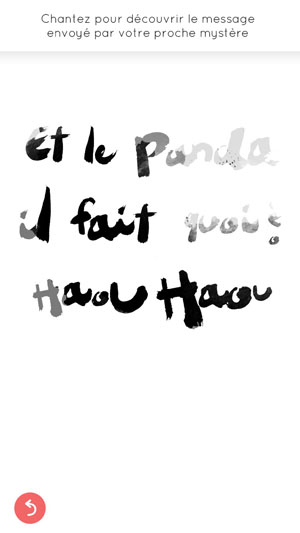 Chantez pour découvrir le message
envoyé par votre proche mystère
Et le Panda
il fait quoi?
Haou Haou